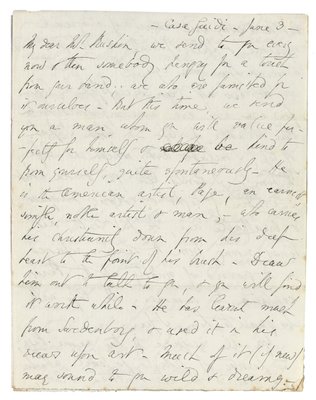 – Casa Guidi – June 3 –
My dear Mr. Ruskin, we send to you every
now & then somebody hungry for a touch
from your hand.. we who are famished for
it ourselves – But this time we send
you a man whom you will value per-
fectly for himself & be kind to
from yourself, quite spontaneously – He
is the American artist, Page, an earnest
simple, noble artist & man, – who carries
his christianity down from his deep
heart to the point of his brush – Draw
him out to talk to you, & you will find
it worth while – He has learnt much
from Swedenborg, & used it in his
views upon art – Much of it (if new)
may sound to you wild & dreamy –